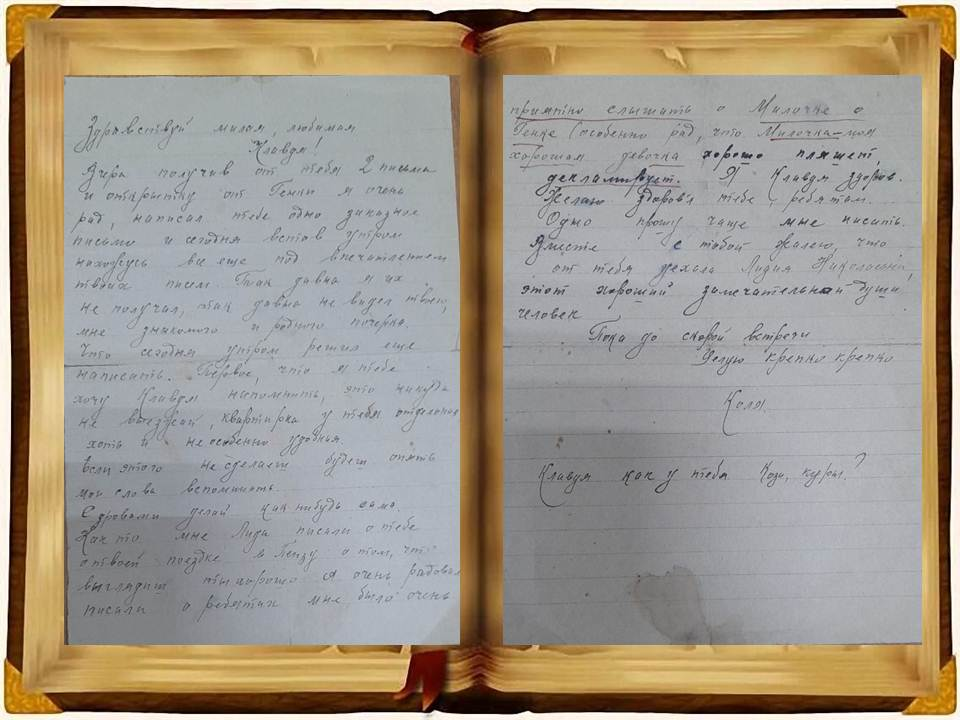 Здравствуй милая, любимая
Клавдя!
Вчера получив от тебя 2 письма
и открытку от Генки я очень
рад, написал тебе одно заказное
письмо и сегодня встав утром
нахожусь все еще под впечатлением
твоих писем. Так давна я их
не получал, так давна не видел твоего,
мне знакомого и родного почерка.
Что сегодня утром решил еще
написать. Первое, что я тебе
хочу Клавдя напомнить, это никуда
не выезжай, квартирка у тебя отдельная
хоть и не особенно удобная.
Если этого не сделаеш будеш опять
мои слова вспоминать.
С дровами делай как нибудь сама.
Как то мне Лида писали о тебе
о твоей поездке в Пензу о том, что
выглядиш ты хорошо я очень радовал
писали о ребятах мне было очень
приятно слышать о Милочке о
Генке (особенно рад, что Милочка-моя
хорошая девочка хорошо пляшет,
декламирует. Я Клавдя здоров.
Желаю здоров'я тебе, ребятам.
Одно прошу чаще мне писать.
Вместе с тобой жалею, что
от тебя уехала Лидия Николаевна,
этот хороший замечательной души
человек
Пока до скорой встречи
Целую крепко крепко
Коля.
Клавдя как у тебя Коза, куры?